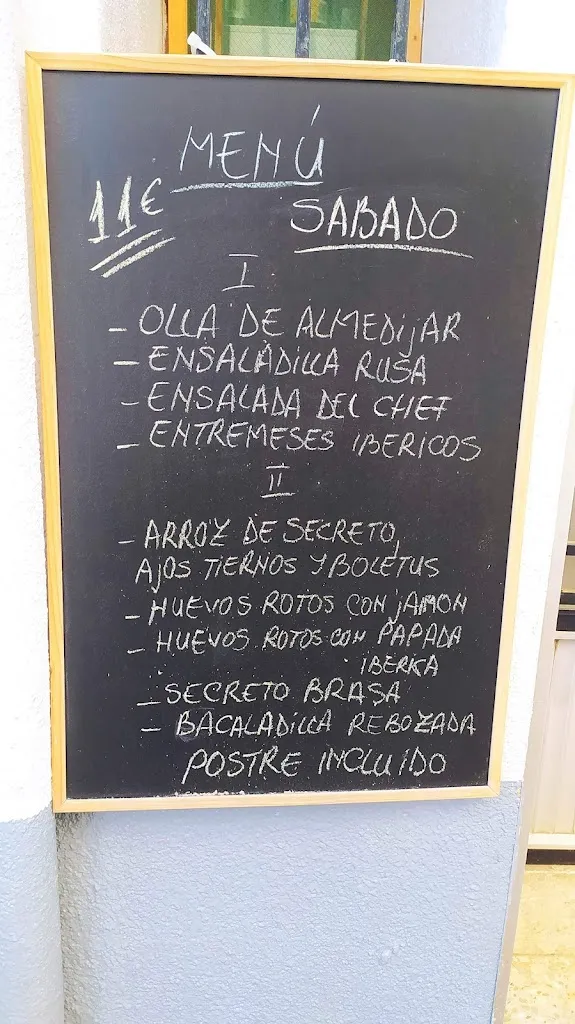 MENÚ
11€
SABADO
I
- OLLA DE ALMEDIJAR
- ENSALADILLA RUSA
- ENSALADA DEL CHEF
- ENTREMESES IBERICOS
II
- ARROZ DE SECRETO,
AJOS TIERNOS Y BOLETUS
- HUEVOS ROTOS CON JAMON
- HUEVOS ROTOS CON PAPADA
IBERKA
- SECRETO BRASA
- BACALADILLA REBOZADA
POSTRE INCLUIDO